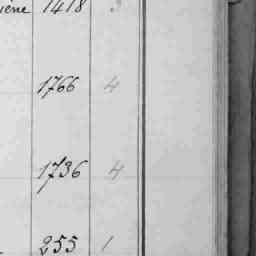 iene 1418 3
1766 4
1736 4
255 1